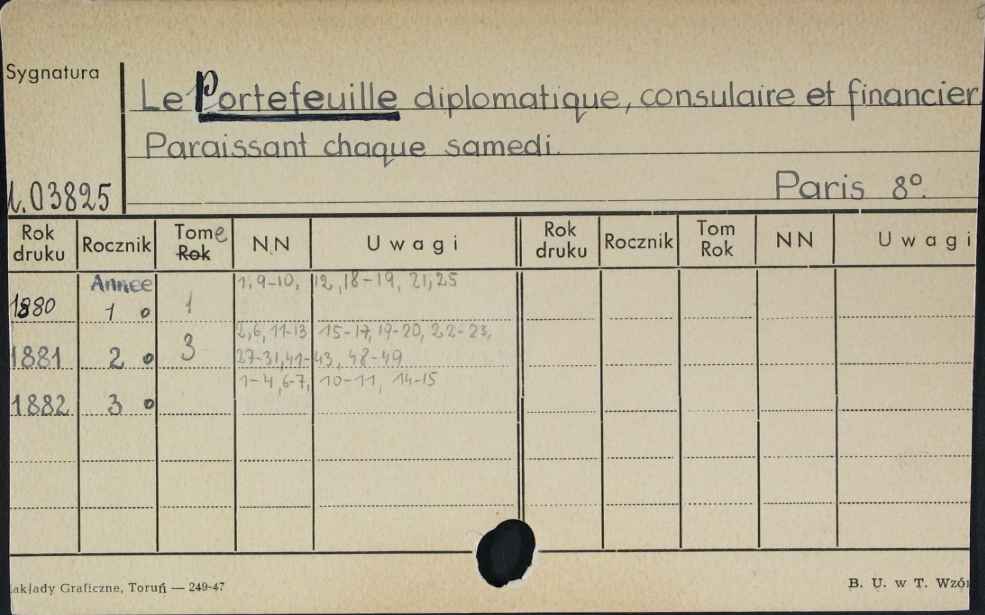 Sygnatura
Le Portefeuille diplomatique, consulaire et financier
Paraissant chaque samedi.
Paris 8°.
03825
Rok druku Rocznik Tome Rok NN Uwagi Rok druku Rocznik Tom Rok NN Uwagi
Année 1, 9-10, 12, 18-19, 21, 25
1880 1 o 1
2, 6, 11-13 15-17, 19-20, 22-23,
1881 2 o 3 27-31, 41-43, 48-49
1-4, 6-7, 10-11, 14-15
1882 3 o
akłady Graficzne, Toruń — 249-47 B. U. w T. Wzór